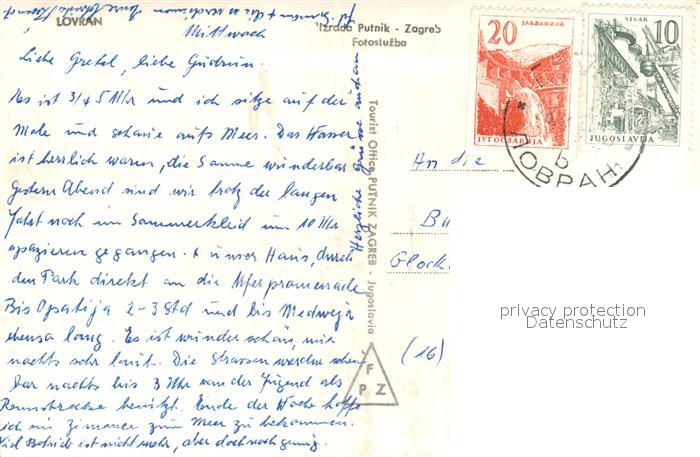 LOVRAN
Mittwoch
Izrada Putnik - Zagreb
Fotoslužba
Liebe Gretel, liebe Gudrun.
Es ist 3/4 5 Uhr und ich sitze auf der
Mole und schaue aufs Meer. Das Wasser
ist herrlich warm, die Sonne wunderbar
Gestern Abend sind wir trotz der langen
Fahrt noch im Sommerkleid um 10 Uhr
spazieren gegangen. unser Haus, durch
den Park direkt an die Uferpromenade
Bis Opatija 2-3 Std und bis Medweja
ebenso lang. Es ist wunderschön, nur
nachts sehr laut. Die Strassen werden
nachts bis 3 Uhr von der Jugend als
Rennstrecke benützt. Ende der Woche hoffe
ich ein Zimmer zum Meer zu bekommen.
Viel Betrieb ist nicht mehr, aber doch noch genug.
Herzliche Grüsse
Tourist Office PUTNIK ZAGREB - Jugoslavia
F
P Z
An die
Glock
(16)
20
ЈАБЛАНИЦА
ЈУГОСЛАВИЈА
SISAK
10
JUGOSLAVIJA
ЛОВРАН
privacy protection
Datenschutz